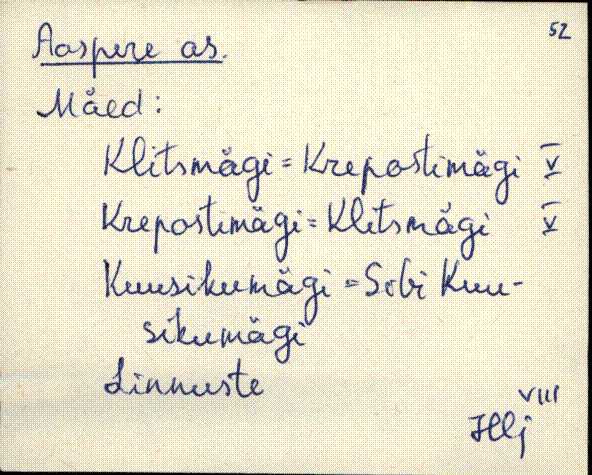 52
Aaspere as.
Mäed:
Klitsmägi = Krepostimägi V
Krepostimägi = Klitsmägi V
Kuusikumägi = Sobi Kuu-
sikumägi
Linnuste
VIII
Hlj